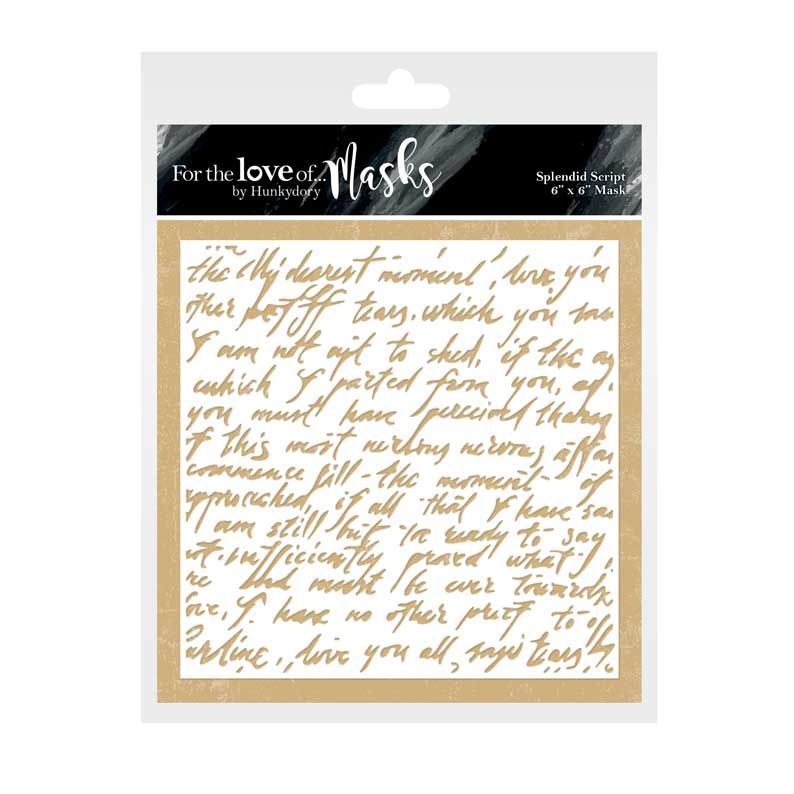 For the love of... Masks
by Hunkydory
Splendid Script
6" x 6" Mask
the My dearest moment, love you
other proff tears. which you
I am not apt to shed, if the
which I parted from you,
you must have perceived
of this most nervous
commence fill - the moment - of
approached, if all that I have
am still but ready to say
sufficiently proved what
and must be ever towards
I have no other proff to
love you all, says tears